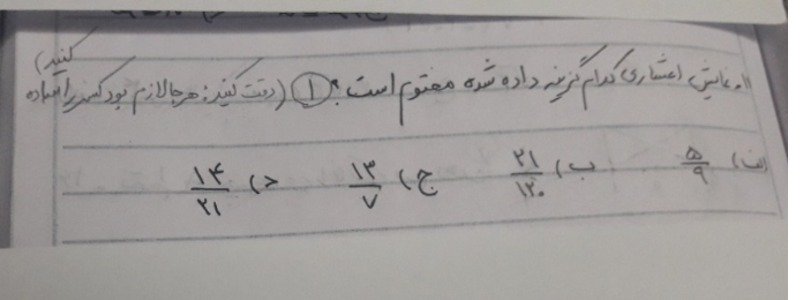 کنید)
۱۱. نمایش اعشاری کدام گزینه داده شده مختوم است؟ ۱ (دقت کنید: هرجا لازم بود کسر را ساده
الف) ۵/۹ ب) ۲۱/۱۲۰ ج) ۱۳/۷ د) ۱۴/۲۱